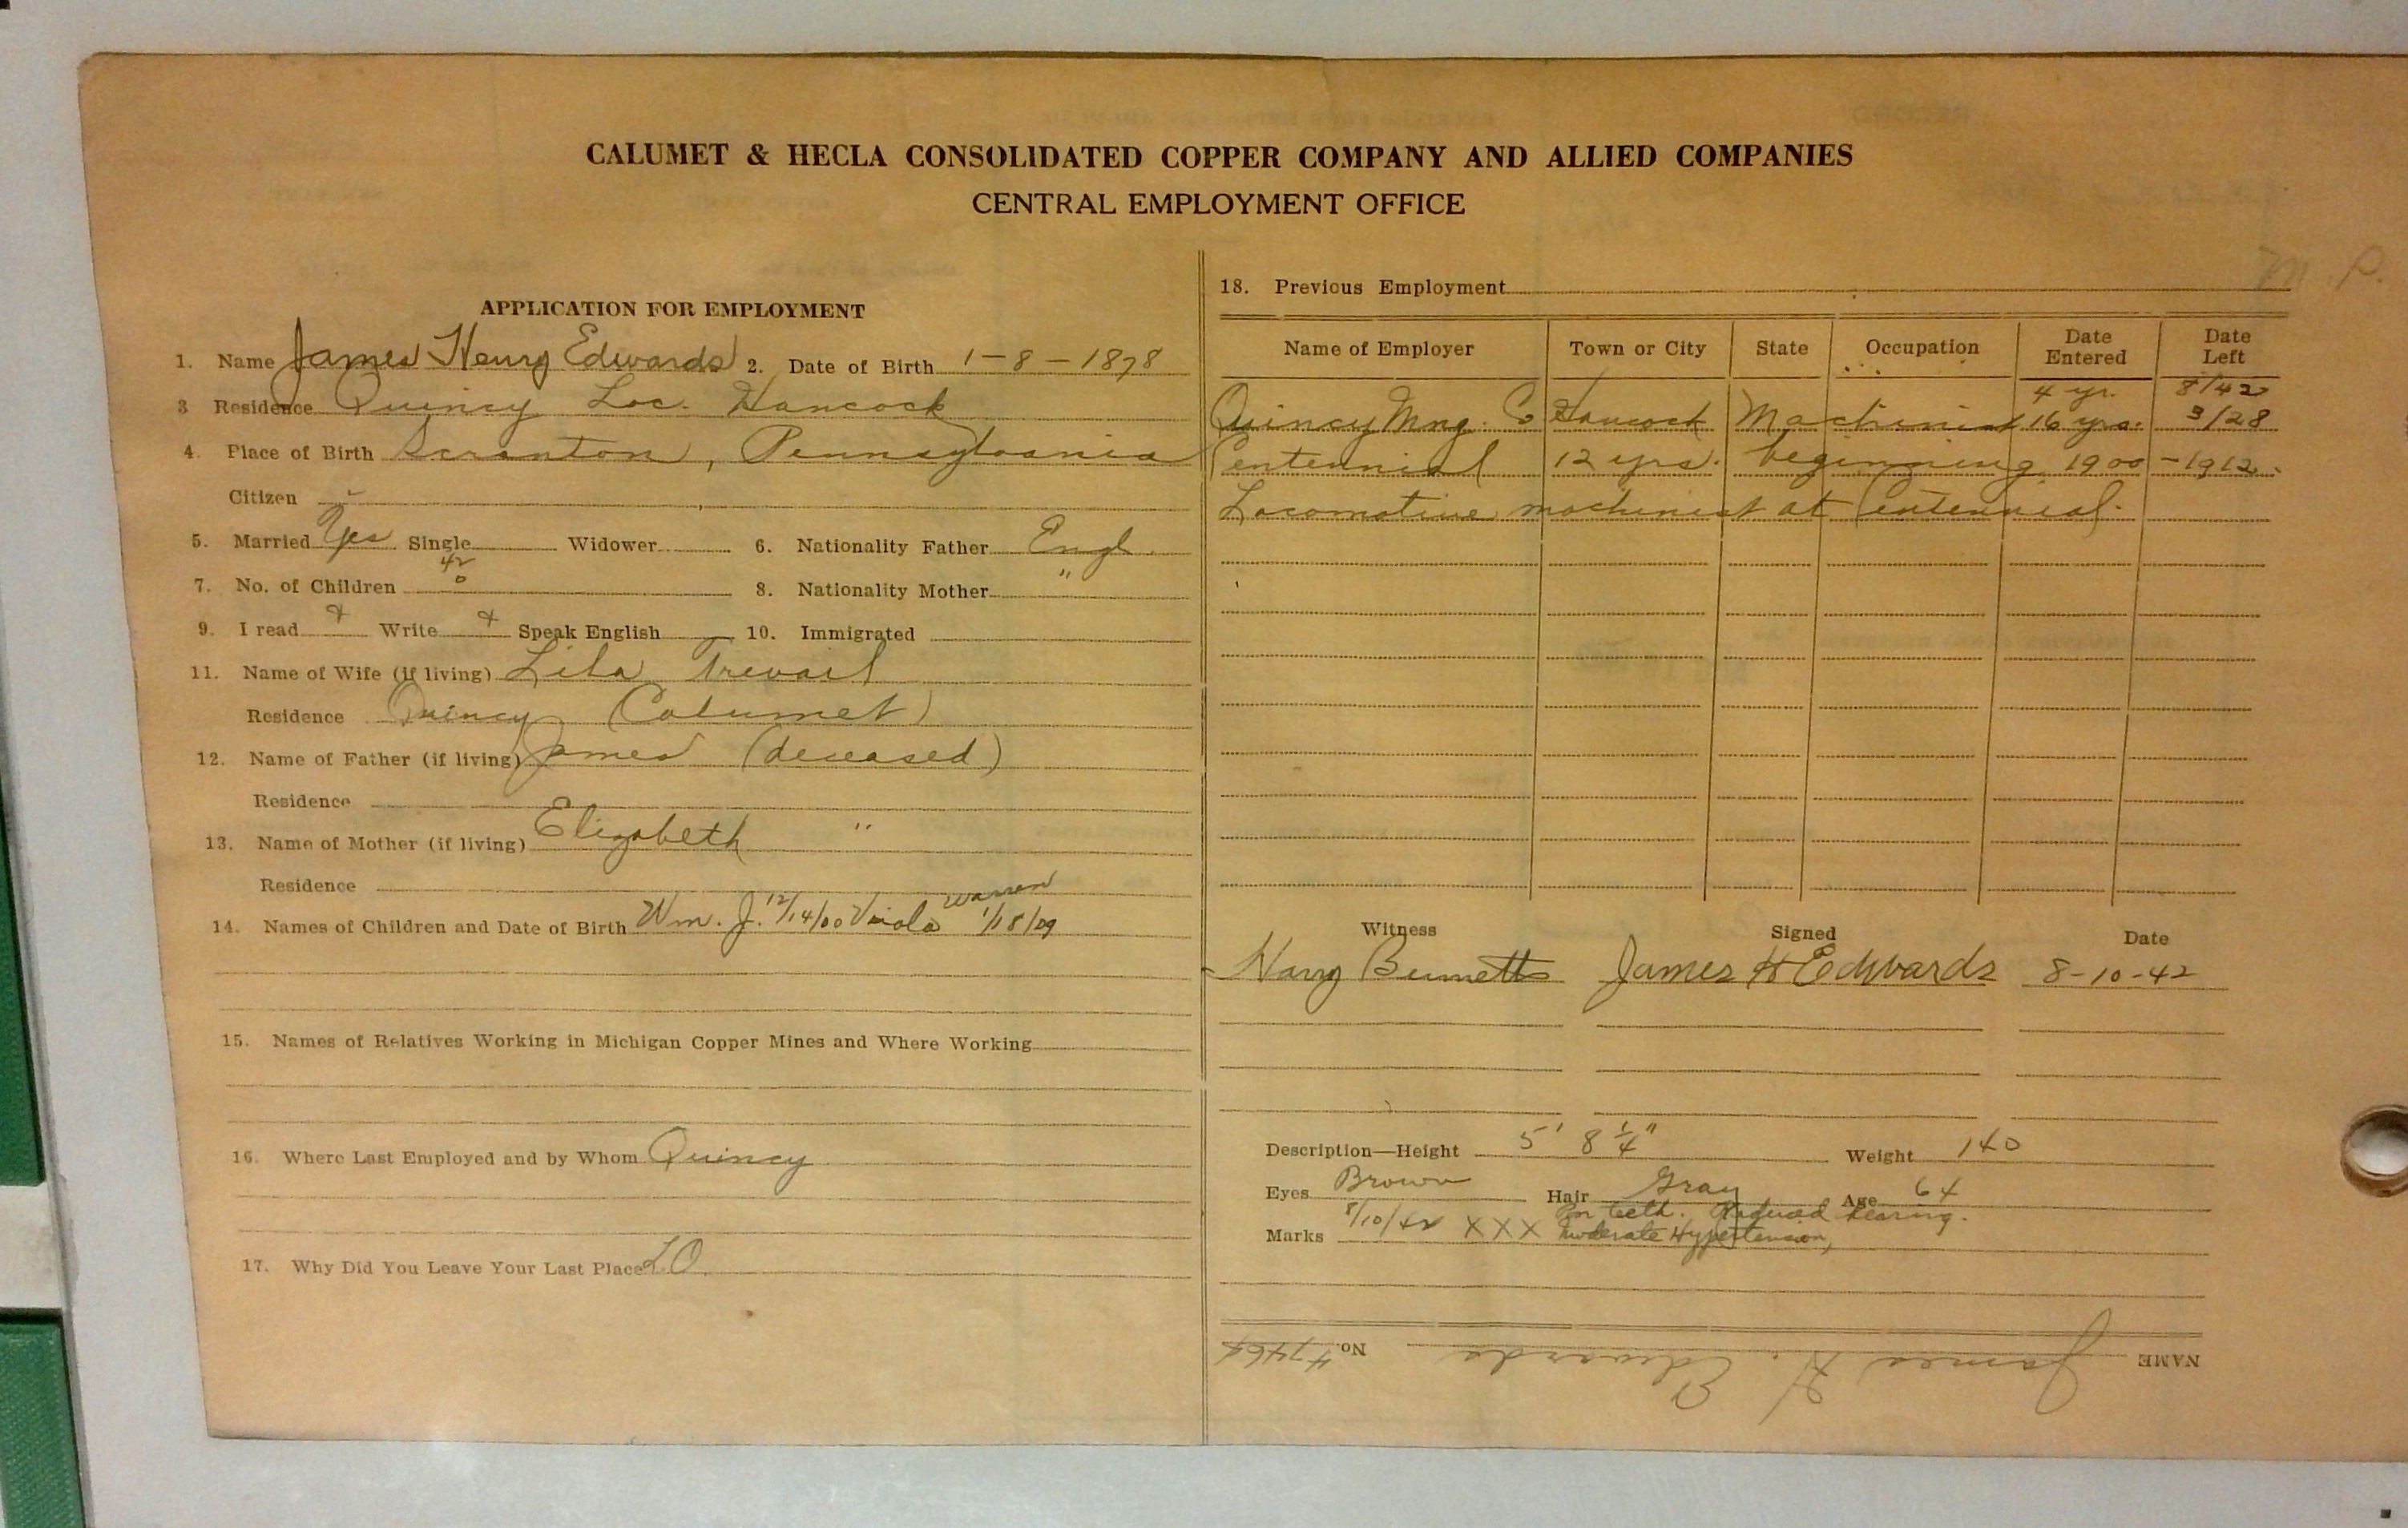 CALUMET & HECLA CONSOLIDATED COPPER COMPANY AND ALLIED COMPANIES
CENTRAL EMPLOYMENT OFFICE
APPLICATION FOR EMPLOYMENT
1. Name James Henry Edwards 2. Date of Birth 1-8-1878
3 Residence Quincy Loc. Hancock
4. Place of Birth Scranton, Pennsylvania
Citizen
5. Married Yes Single Widower 6. Nationality Father Engl.
7. No. of Children 42 0 8. Nationality Mother "
9. I read Write Speak English 10. Immigrated
11. Name of Wife (if living) Lila Trevail
Residence Quincy (Calumet)
12. Name of Father (if living) James (deceased)
Residence
13. Name of Mother (if living) Elizabeth "
Residence
Warren
14. Names of Children and Date of Birth Wm. J. 12/14/00 Viola 1/18/09
15. Names of Relatives Working in Michigan Copper Mines and Where Working
16. Where Last Employed and by Whom Quincy
17. Why Did You Leave Your Last Place L.O.
M.P.
18. Previous Employment
Name of Employer Town or City State Occupation Date Entered Date Left
4 yr. 8/42
Quincy Mng. Co Hancock Machinist 16 yrs. 3/28
Centennial 12 yrs. beginning 1900 - 1912.
Locomotive machinist at Centennial.
Witness Signed Date
Harry Bennetts James H Edwards 8-10-42
Description—Height 5' 8 1/4" Weight 140
Eyes Brown Hair Gray Age 64
teeth. Reduced hearing.
Marks 8/10/42 XXX Moderate Hypertension,
NAME James H. Edwards No. 47464